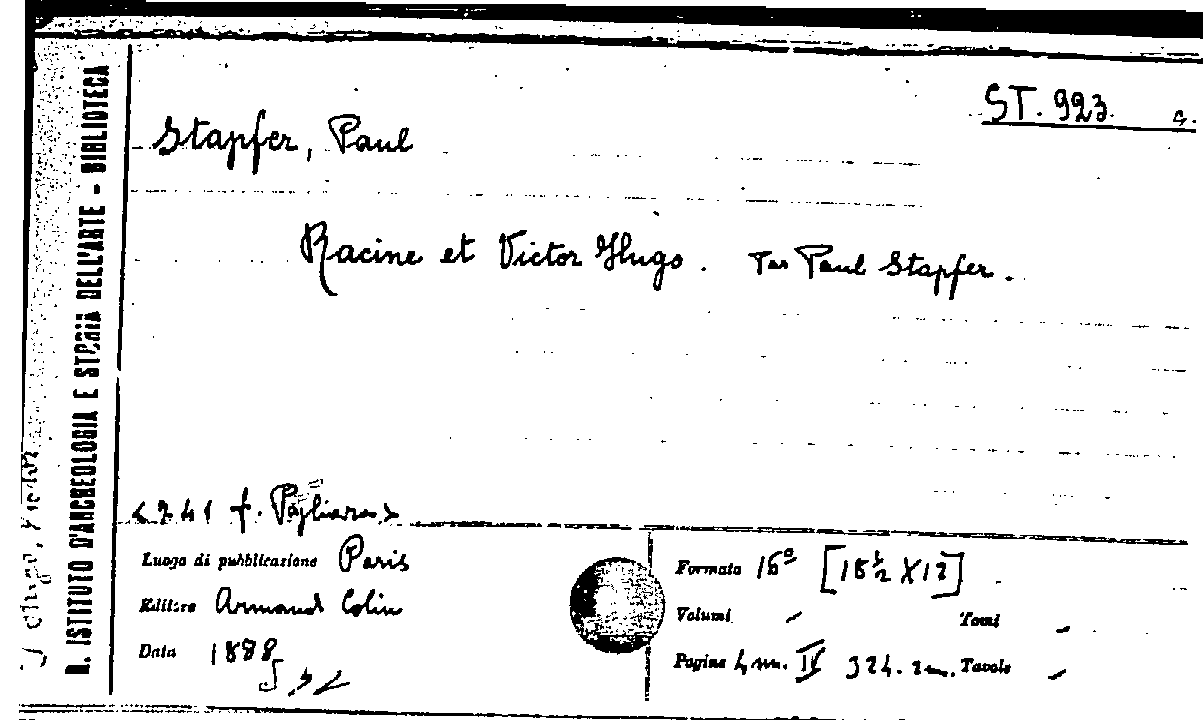 ST. 923
Stapfer, Paul
Racine et Victor Hugo. Par Paul Stapfer.
R. ISTITUTO D'ARCHEOLOGIA E STORIA DELL'ARTE - BIBLIOTECA
Hugo, Victor
<741 f. Pagliara>
Luogo di pubblicazione Paris
Editore Armand Colin
Data 1888
Formato 16° [18½ X 12]
Volumi - Tomi -
Pagine 4 nn. IV 324. 2 nn. Tavole -